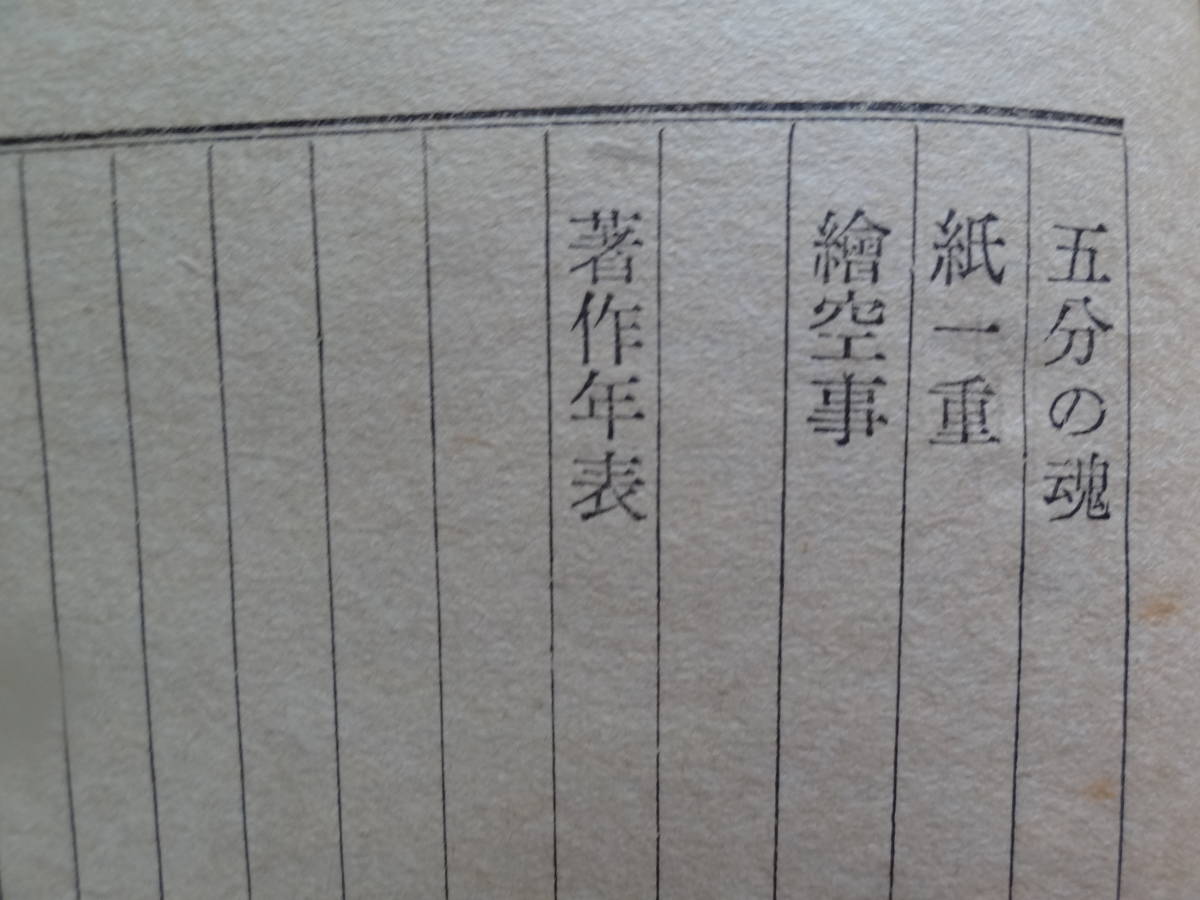 五分の魂
紙一重
繪空事
著作年表